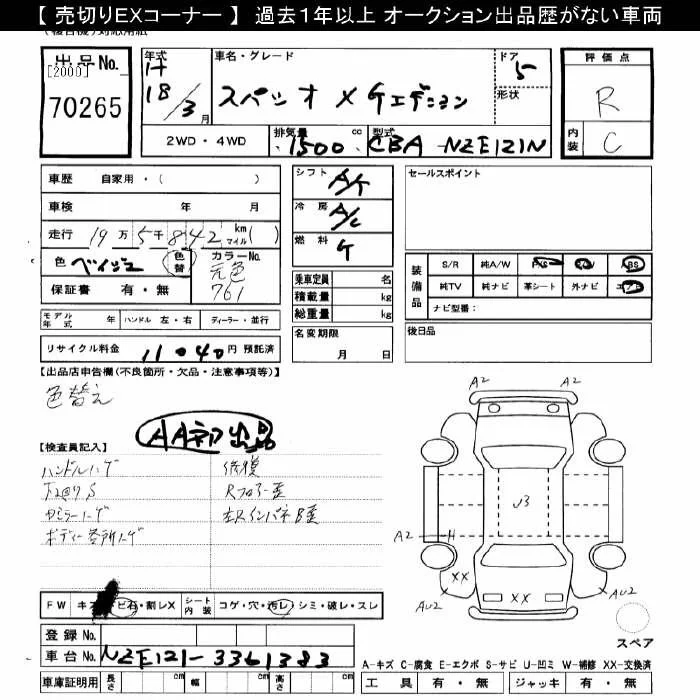 【 売切りEXコーナー 】 過去１年以上 オークション出品歴がない車両
出品No.
[2000]
70265
年式
18/3月
車名・グレード
スパシオ X Gエディション
ドア
5
形状
評価点
R
内装
C
2WD・4WD
排気量
1500 cc
型式
CBA-NZE121N
車歴 自家用・( )
車検 年 月
走行 19万5千842 km マイル ( )
色 ベージュ 色替 カラーNo. 元色 761
保証書 有・無
シフト A/T
冷房 A/C
燃料 G
セールスポイント
装備品
S/R 純A/W P/S P/W ABS
純TV 純ナビ 革シート 外ナビ エアB
ナビ型番:
乗車定員 名
積載量 kg
総重量 kg
モデル年式 年 ハンドル 左・右 ディーラー・並行
名変期限
月 日
後日品
リサイクル料金 11040 円 預託済
【出品店申告欄(不良箇所・欠品・注意事項等)】
色替え
AA初出品
【検査員記入】
ハンドルハゲ 修復
Rフロアー歪
ボディー各所ハゲ
A2 A2
U3
A2
XX
XX
AU2 AU2
FW キズ・トビ石・割レX シート内装 コゲ・穴・汚レ・シミ・破レ・スレ
スペア
登録 No.
車台 No. NZE121-3361383
A-キズ C-腐食 E-エクボ S-サビ U-凹ミ W-補修 XX-交換済
車庫証明用 長さ cm 幅 cm 高さ cm
工具 有・無 ジャッキ 有・無